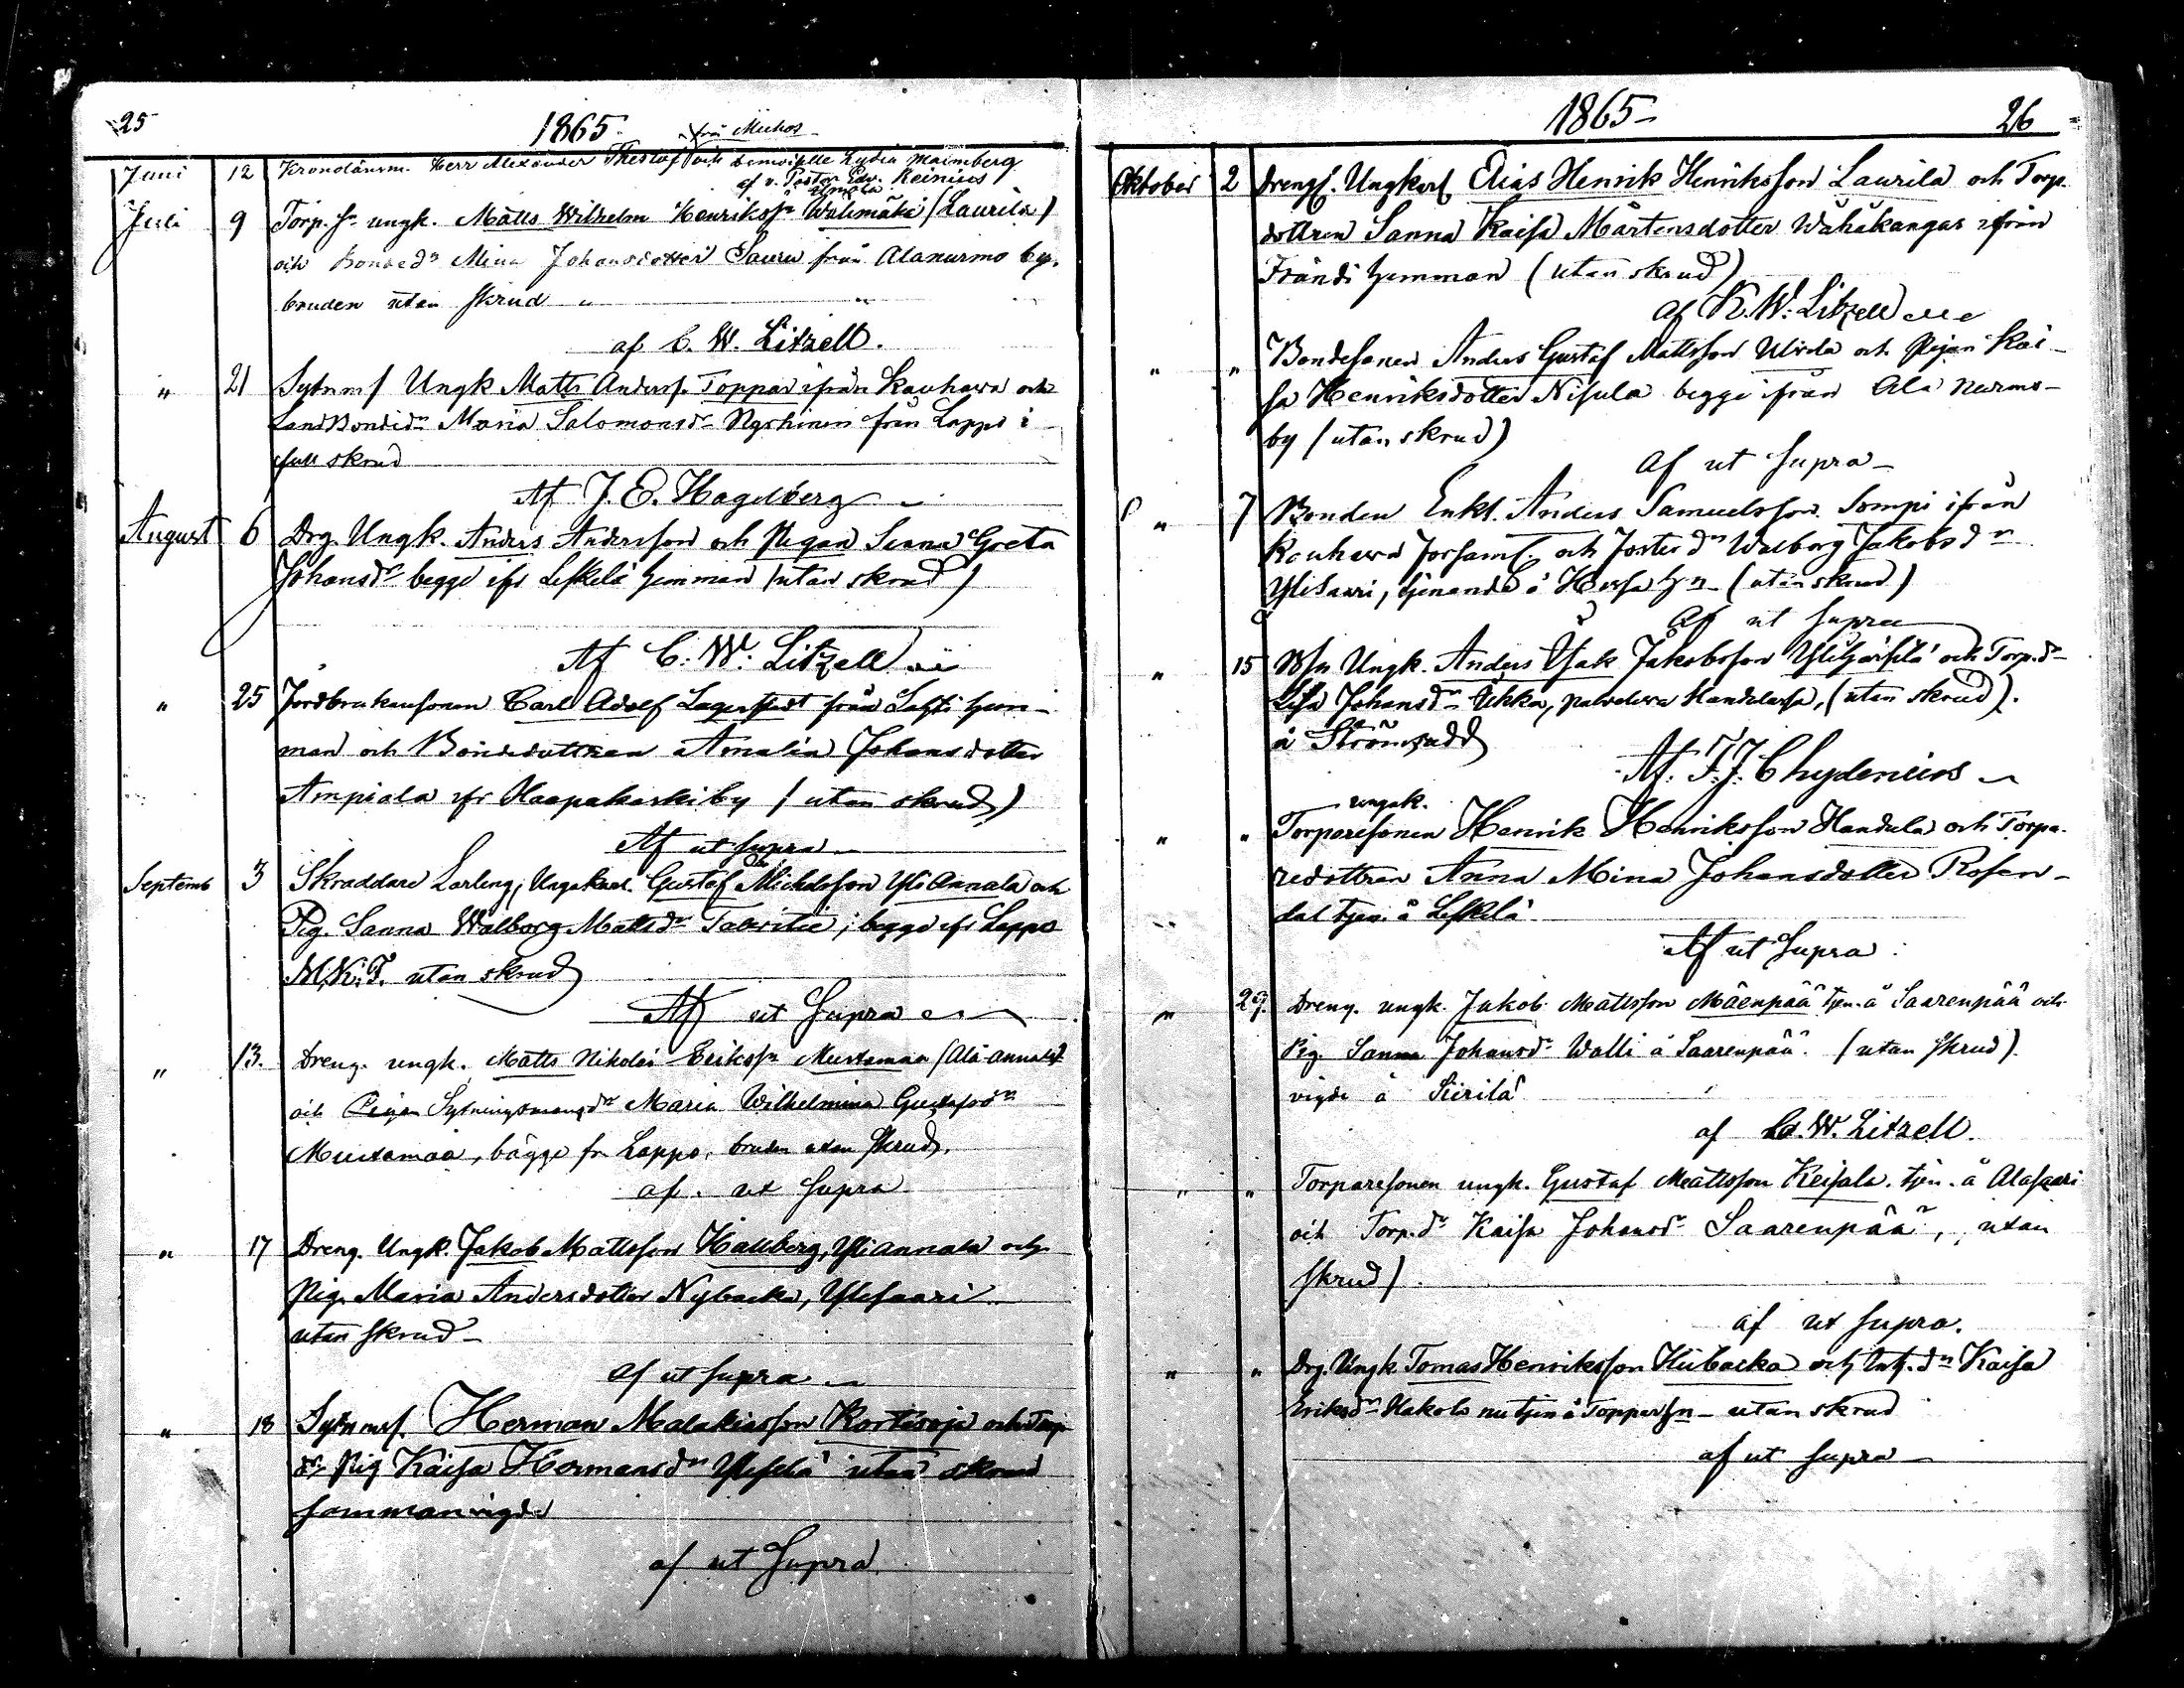 25
1865
från Muhos
Juni 12 Kronolänsm. Herr Alexander Thesleff och Demoiselle Lydia Malmberg
af v. Pastor Edv. Reinius
Juli 9 Torp.s. ungk. Matts Wilhelm Henrikss. Wälimäki (Laurila)
och Bonded:r Mina Johansdotter Sauru från Alanurmo by,
bruden utan skrud
af C. W. Litzell.
" 21 Sytnms Ungk Matts Anderss. Toppar ifrån Kauhava och
Landbonded:r Maria Salomonsd:r från Lappo i
full skrud
Af J. E. Hagelberg
August 6 Drg. Ungk. Anders Andersson och Pigan Sanna Greta
Johansd:r begge ifr Leskelä hemman (utan skrud)
Af C. W. Litzell
" 25 Jordbrukaresonen Carl Adolf från Lahti hem-
man och Bondedottren Amalia Johansdotter
Ampiala ifr Haapakoski by (utan skrud)
Af ut supra
Septemb 3 Skräddare Lärling, Ungekarl. Gustaf Michelsson Yli Annala och
Pig. Sanna Walborg Mattsd:r, begge ifr Lappo
M.K.F. utan skrud
Af ut Supra
" 13. Dreng. ungk. Matts Nikolai Erikss:n Mustamaa (Ala-annala)
och Pigan Sytningsmansd:r Maria Wilhelmina Gustafsd:r
Mustamaa, bägge fr. Lappo, bruden utan skrud.
af. ut supra
" 17 Dreng. Ungk. Jakob Mattsson Hallberg, Yliannala och
Pig. Maria Andersdotter Nybacka, Ylisaari
utan skrud
af ut supra
" 18 Sytnmss. Herman Malakiasson Kortesoja och Torp
d:r Pig Kaisa Hermansd:r utan skrud
sammanvigde
af ut Supra
1865
26
Oktober 2 Drengs. Ungkarl Elias Henrik Henriksson Laurila och Torp.
dottren Sanna Kaisa Mårtensdotter Wähäkangas ifrån
Frändi hemman (utan skrud)
af K. W. Litzell
" " Bondesonen Anders Gustaf Mattsson och Pigan Kai-
sa Henriksdotter Nisula begge ifrån Ala nurmo-
by (utan skrud)
af ut supra
" 7 Bonden Enkl. Anders Samuelsson Sompi ifrån
Kauhava församl. och d:r Walborg Jakobsd:r
Ylisaari, tjenande å (utan skrud)
Af ut supra
" 15 Ungk. Anders Isak Jakobsson och Torp.d:r
Lisa Johansd:r Ukko, (utan skrud).
å
Af. F. J. Chydenius
ungk.
" " Torparesonen Henrik Henriksson Handula och Torpa-
redottren Anna Mina Johansdotter Rosen-
dal tjen. å Leskelä
Af ut Supra
" 29. Dreng. ungk. Jakob Mattsson Mäenpää tjen. å Saarenpää och
Pig. Sanna Johansd:r Walli å Saarenpää. (utan skrud).
vigde å Siirilä
af C. W. Litzell.
" " Torparesonen ungk. Gustaf Mattsson Keisala. tjen. å Alasaari
och Torp.d:r Kaisa Johansd:r Saarenpää, utan
skrud)
af ut supra.
" " Drg. Ungk Tomas Henriksson Kiibacka och d:r Kaisa
Eriksd:r Hakola nu tjen å Toppar hn utan skrud
af ut supra